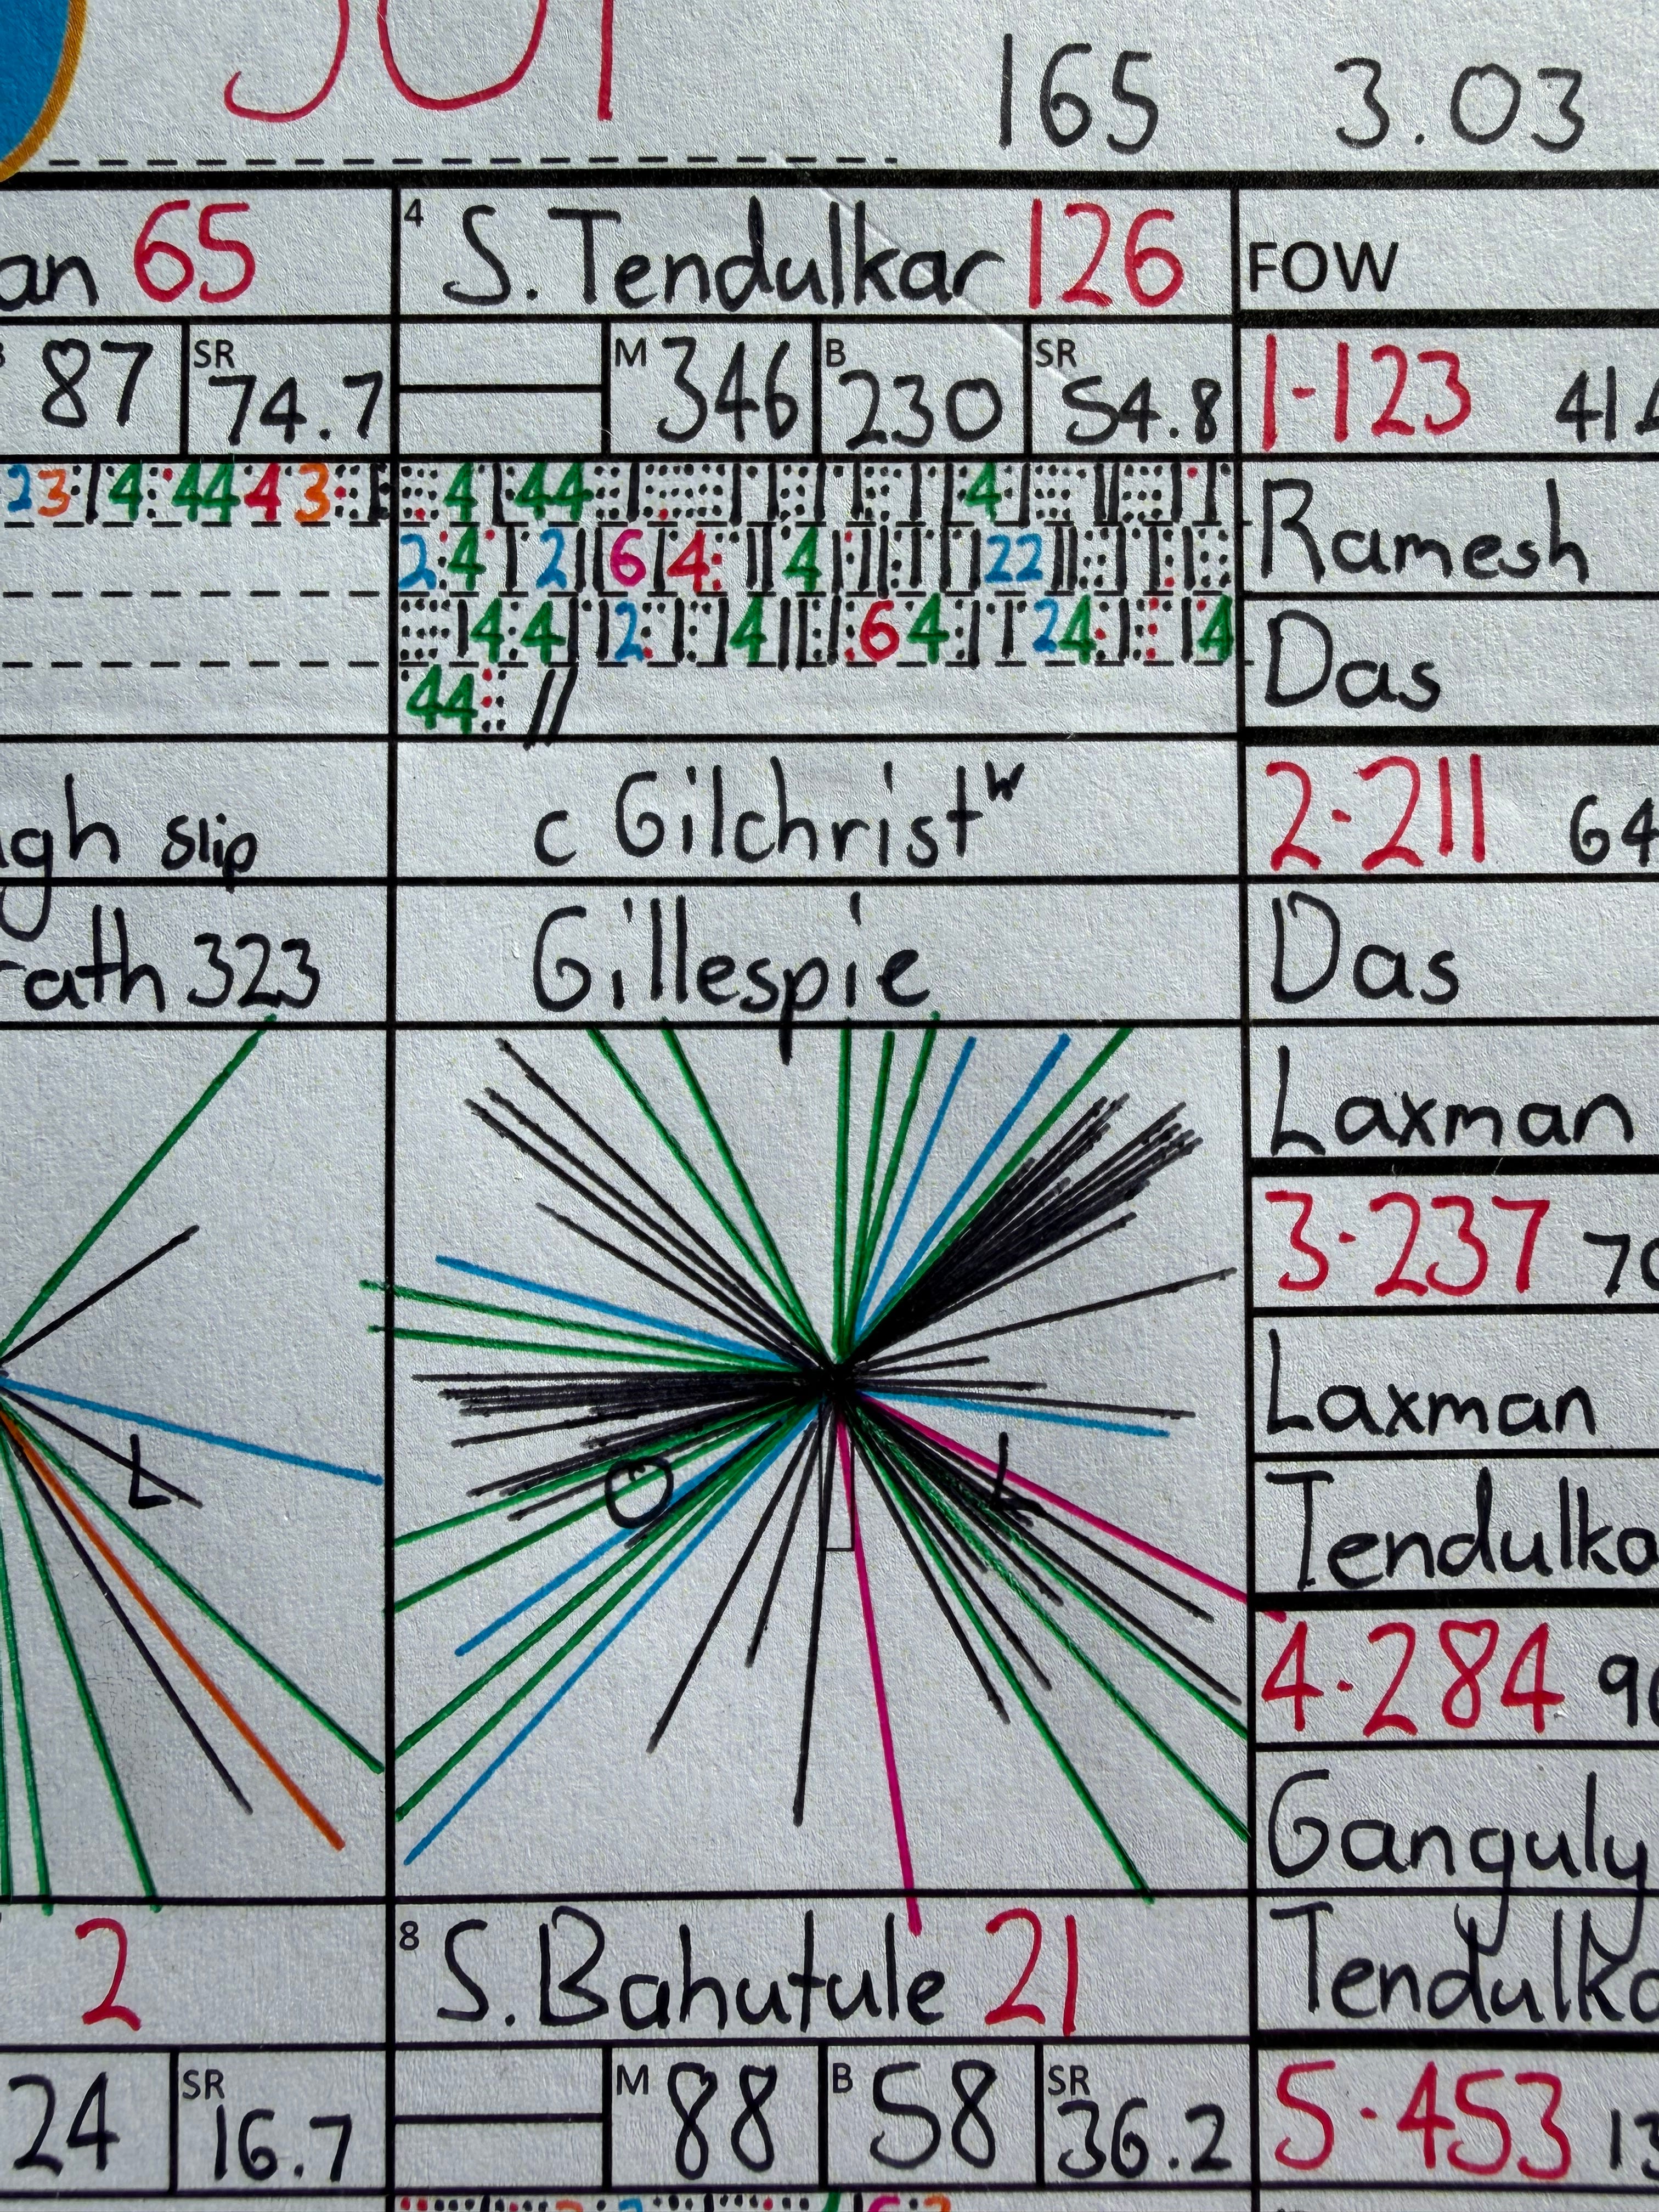 501
165 3.03
an 65
4 S. Tendulkar 126
FOW
87 SR 74.7
M 346 B 230 SR 54.8
1-123 41
23 4 44 4 3
4 44 4
Ramesh
2 4 2 6 4 4 22
4 4 2 4 6 4 24 4
Das
44 //
gh slip
c Gilchrist w
2-211 64
rath 323
Gillespie
Das
Laxman
3-237 70
Laxman
L
O
L
Tendulka
4-284 90
Ganguly
2
8 S. Bahutule 21
Tendulka
24 SR 16.7
M 88 B 58 SR 36.2
5-453 13